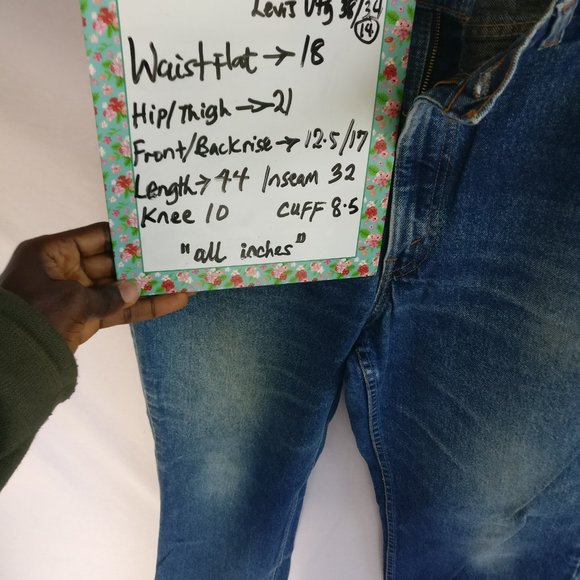 Levis Vtg 38/34
(14)
Waist Flat → 18
Hip/Thigh → 21
Front/Backrise → 12.5/17
Length → 44 Inseam 32
Knee 10 CUFF 8.5
"all inches"